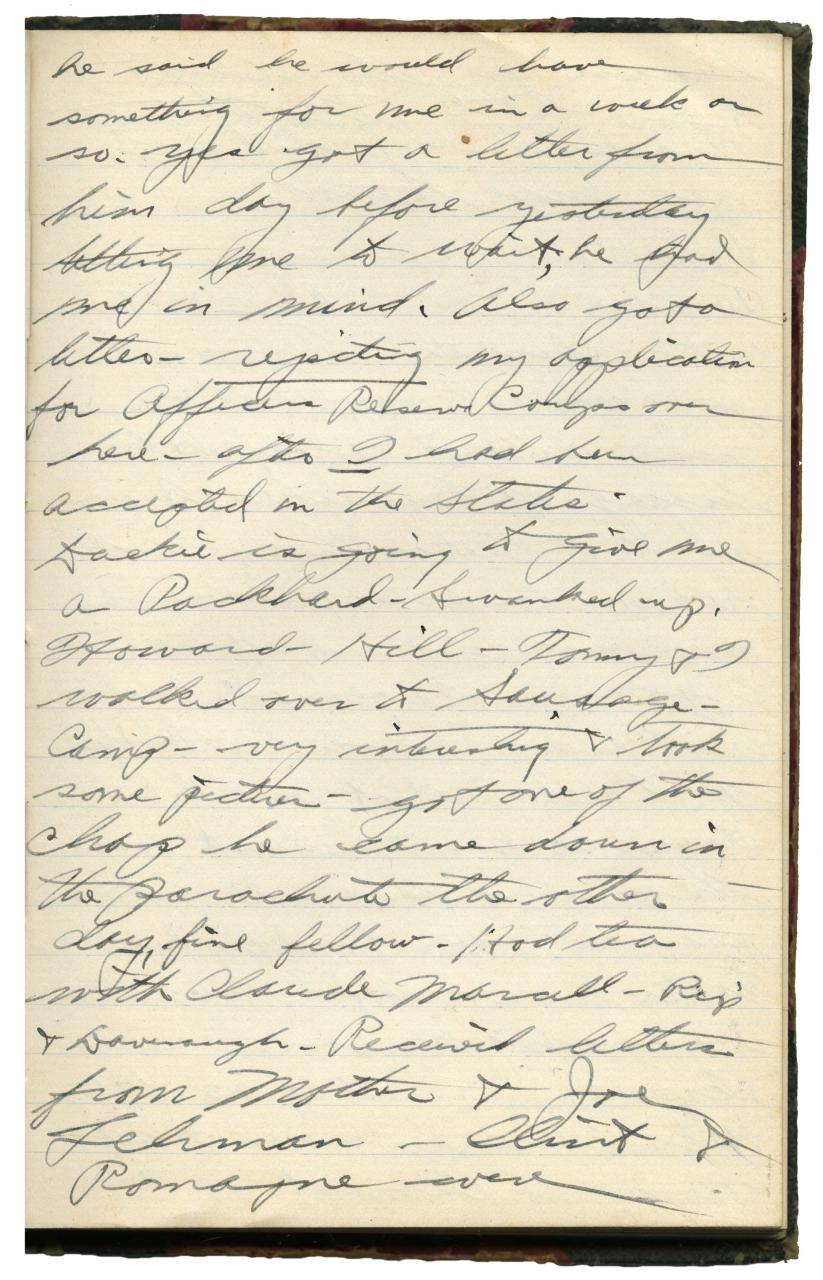 he said he would have
something for me in a week or
so. Yes got a letter from
him day before yesterday
telling me to wait, he had
me in mind. Also got a
letter - rejecting my application
for Officers Reserve Corps over
here - after I had been
accepted in the States.
is going to give me
a Packhard - Swanked up.
Howard - Hill - Tommy & I
walked over to Sausage -
Camp - very interesting & took
some pictures - got one of the
chap he came down in
the parachute the other
day, fine fellow - Had tea
with Claude - Rip
& - Received letters
from Mother & Joe
Lehman - Clint &
Romayne were